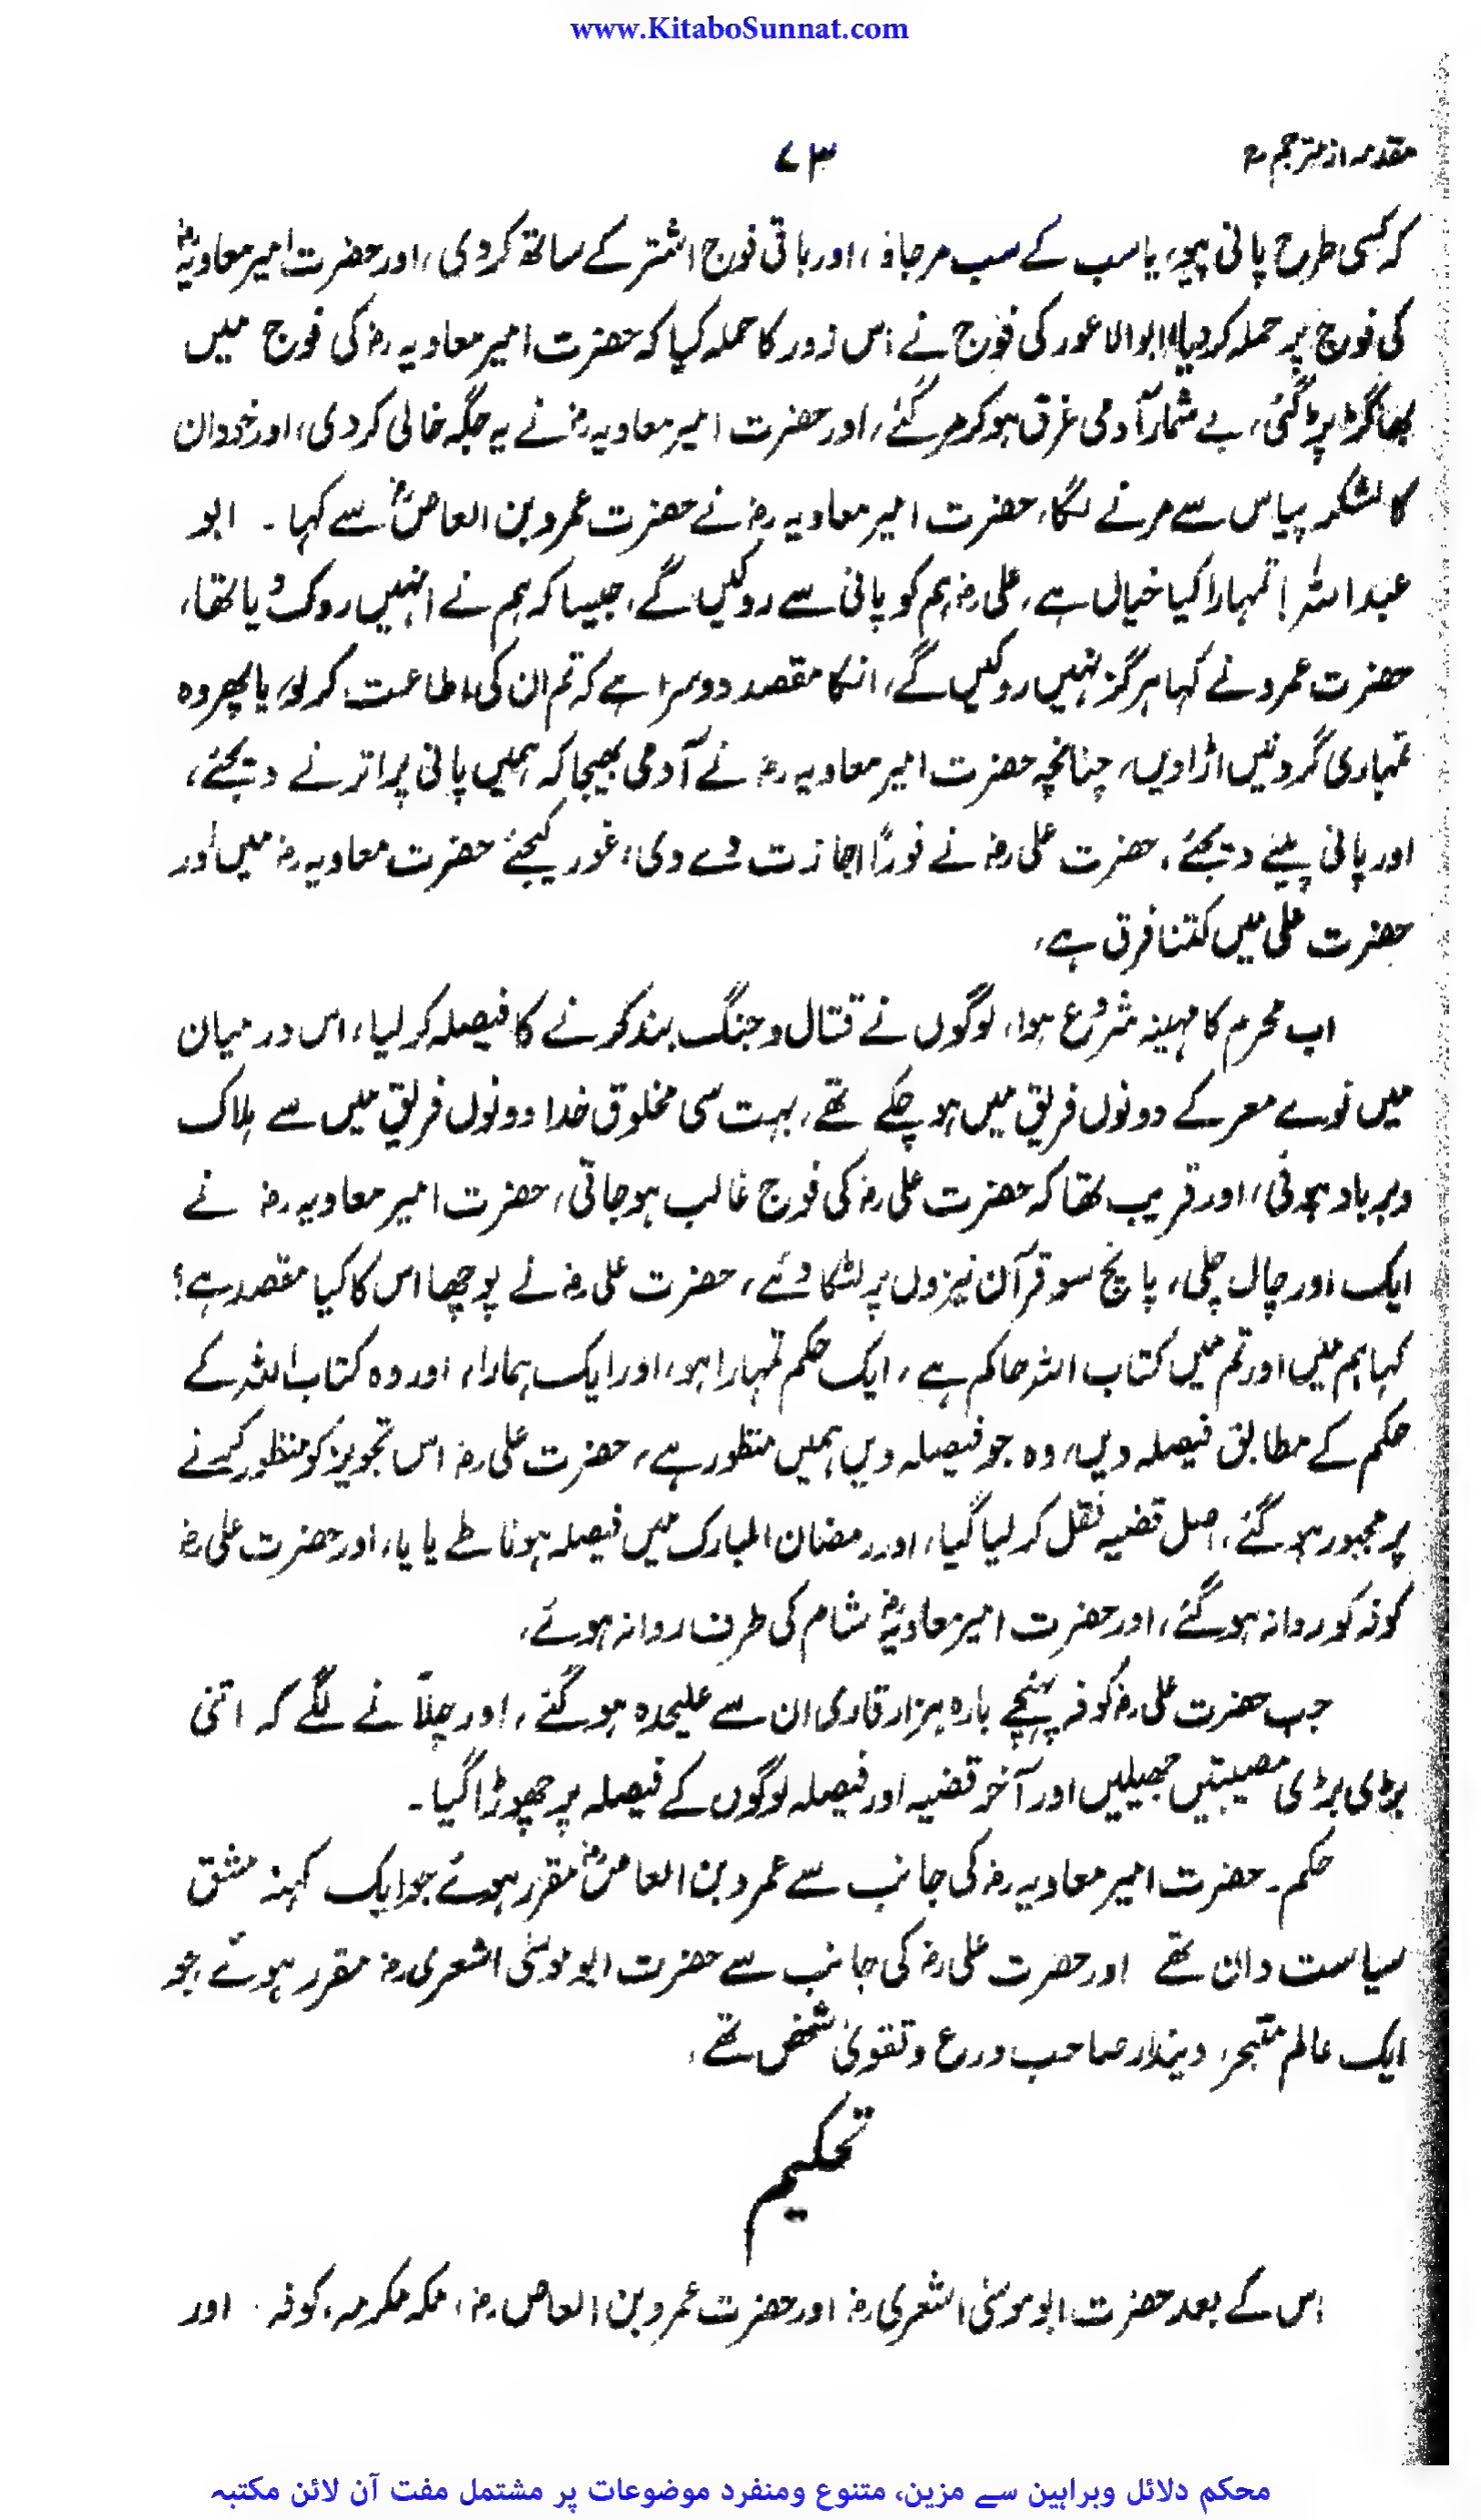 www.KitaboSunnat.com
مقدمہ از مترجم
۷۳
کہ کسی طرح پانی پیو، یا سب کے سب مر جاؤ، اور باقی فوج اشتر کے ساتھ کر دی، اور حضرت امیر معاویہؓ
کی فوج پر حملہ کر دیا، ابوالاعور کی فوج نے اس زور کا حملہ کیا کہ حضرت امیر معاویہ رضہ کی فوج میں
بھاگڑ پڑ گئی، بے شمار آدمی غرق ہو کر مر گئے، اور حضرت امیر معاویہ رضہ نے یہ جگہ خالی کر دی، اور خود ان
کا لشکر پیاس سے مرنے لگا، حضرت امیر معاویہ رضہ نے حضرت عمرو بن العاصؓ سے کہا ۔ ابو
عبداللہ! تمہارا کیا خیال ہے، علی رضہ ہم کو پانی سے روکیں گے، جیسا کہ ہم نے انہیں روک دیا تھا،
حضرت عمرو نے کہا ہرگز نہیں روکیں گے، انکا مقصد دوسرا ہے کہ تم ان کی اطاعت کر لو، یا پھر وہ
تمہاری گردنیں اڑا دیں، چنانچہ حضرت امیر معاویہ رضہ نے آدمی بھیجا کہ ہمیں پانی پر اترنے دیجئے،
اور پانی پینے دیجئے، حضرت علی رضہ نے فوراً اجازت دے دی، غور کیجئے حضرت معاویہ رضہ میں اور
حضرت علی میں کتنا فرق ہے،
اب محرم کا مہینہ شروع ہوا، لوگوں نے قتال و جنگ بند کرنے کا فیصلہ کر لیا، اس درمیان
میں نوے معرکے دونوں فریق میں ہو چکے تھے، بہت سی مخلوق خدا دونوں فریق میں سے ہلاک
و برباد ہوئی، اور قریب تھا کہ حضرت علی رضہ کی فوج غالب ہو جاتی، حضرت امیر معاویہ رضہ نے
ایک اور چال چلی، پانچ سو قرآن نیزوں پر لٹکا دئے، حضرت علی رضہ نے پوچھا اس کا کیا مقصد ہے؟
کہا ہم میں اور تم میں کتاب اللہ حاکم ہے، ایک حکم تمہارا ہو، اور ایک ہمارا، اور وہ کتاب اللہ کے
حکم کے مطابق فیصلہ دیں، وہ جو فیصلہ دیں ہمیں منظور ہے، حضرت علی رضہ اس تجویز کو منظور کرنے
پر مجبور ہو گئے، اصل قضیہ نقل کر لیا گیا، اور رمضان المبارک میں فیصلہ ہونا طے پایا، اور حضرت علی رضہ
کوفہ کو روانہ ہو گئے، اور حضرت امیر معاویہؓ شام کی طرف روانہ ہوئے،
جب حضرت علی رضہ کوفہ پہنچے بارہ ہزار قاری ان سے علیحدہ ہو گئے، اور چلّانے لگے کہ اتنی
بڑی بڑی مصیبتیں جھیلیں اور آخر قضیہ اور فیصلہ لوگوں کے فیصلہ پر چھوڑا گیا۔
حکم۔ حضرت امیر معاویہ رضہ کی جانب سے عمرو بن العاصؓ مقرر ہوئے جو ایک کہنہ مشق
سیاست دان تھے اور حضرت علی رضہ کی جانب سے حضرت ابو موسیٰ اشعری رضہ مقرر ہوئے جو
ایک عالم متبحر، دیندار صاحب ورع و تقویٰ شخص تھے،
تحکیم
اس کے بعد حضرت ابو موسیٰ اشعری رضہ اور حضرت عمرو بن العاص رضہ، مکہ مکرمہ، کوفہ اور
محکم دلائل وبراہین سے مزین، متنوع ومنفرد موضوعات پر مشتمل مفت آن لائن مکتبہ